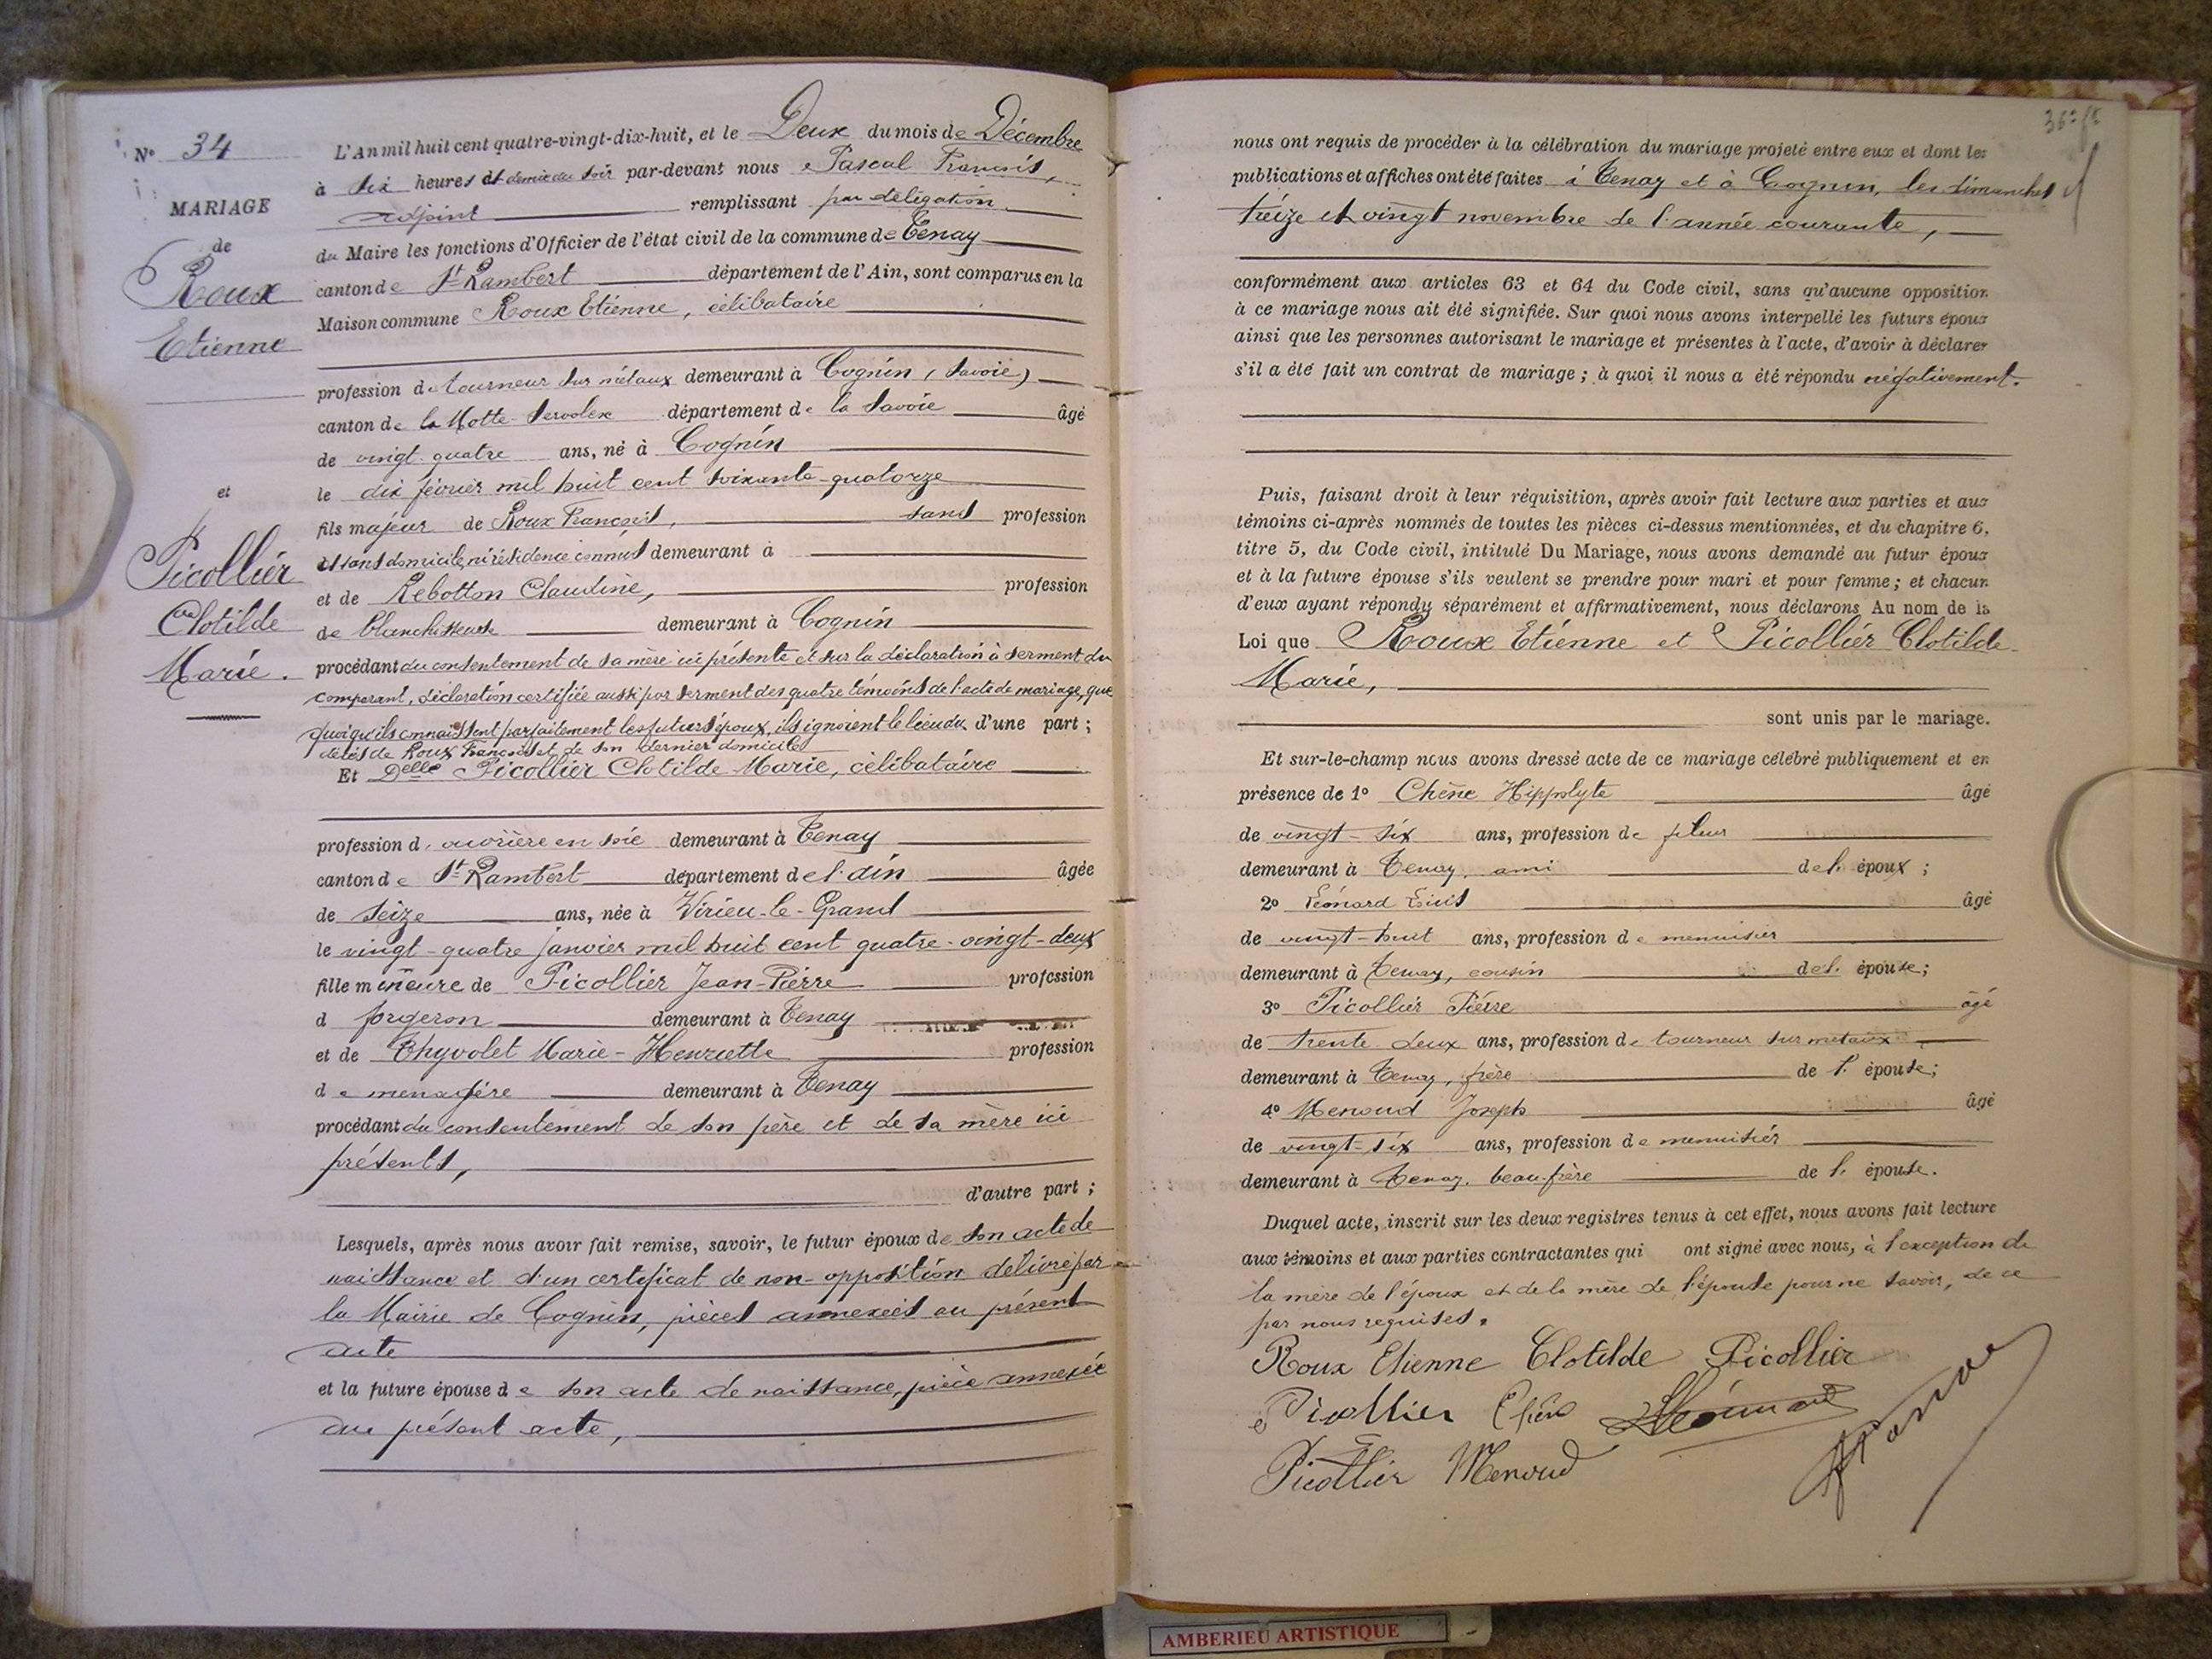 N° 34
MARIAGE
de
Roux
Etienne
et
Picollier
Clotilde
Marie.
L'An mil huit cent quatre-vingt-dix-huit, et le Deux du mois de Décembre
à six heures et demie du soir par-devant nous Pascal François,
adjoint remplissant par délégation
du Maire les fonctions d'Officier de l'état civil de la commune de Tenay
canton de St Rambert département de l'Ain, sont comparus en la
Maison commune Roux Etienne, célibataire
profession de tourneur sur métaux demeurant à Cognin (Savoie)
canton de la Motte-Servolex département de la Savoie âgé
de vingt-quatre ans, né à Cognin
le dix février mil huit cent soixante-quatorze
fils majeur de Roux François, sans profession
et sans domicile, ni résidence connus demeurant à
et de Rebotton Claudine, profession
de blanchisseuse demeurant à Cognin
procédant du consentement de sa mère ici présente et sur la déclaration à serment du
comparant, déclaration certifiée aussi par serment des quatre témoins de l'acte de mariage, que
quoiqu'ils connaissent parfaitement les futurs époux, ils ignorent le lieu du d'une part ;
décès de Roux François et de son dernier domicile
Et Delle Picollier Clotilde Marie, célibataire
profession d'ouvrière en soie demeurant à Tenay
canton de St Rambert département de l'Ain âgée
de seize ans, née à Virieu-le-Grand
le vingt-quatre janvier mil huit cent quatre-vingt-deux
fille mineure de Picollier Jean-Pierre profession
d forgeron demeurant à Tenay
et de Thyvolet Marie-Henriette profession
de ménagère demeurant à Tenay
procédant du consentement de son père et de sa mère ici
présents,
d'autre part ;
Lesquels, après nous avoir fait remise, savoir, le futur époux de son acte de
naissance et d'un certificat de non-opposition délivré par
la Mairie de Cognin, pièces annexées au présent
acte
et la future épouse de son acte de naissance, pièce annexée
au présent acte,
nous ont requis de procéder à la célébration du mariage projeté entre eux et dont les
publications et affiches ont été faites à Tenay et à Cognin, les dimanches
treize et vingt novembre de l'année courante,
conformément aux articles 63 et 64 du Code civil, sans qu'aucune opposition
à ce mariage nous ait été signifiée. Sur quoi nous avons interpellé les futurs époux
ainsi que les personnes autorisant le mariage et présentes à l'acte, d'avoir à déclarer
s'il a été fait un contrat de mariage ; à quoi il nous a été répondu négativement.
Puis, faisant droit à leur réquisition, après avoir fait lecture aux parties et aux
témoins ci-après nommés de toutes les pièces ci-dessus mentionnées, et du chapitre 6,
titre 5, du Code civil, intitulé Du Mariage, nous avons demandé au futur époux
et à la future épouse s'ils veulent se prendre pour mari et pour femme ; et chacun
d'eux ayant répondu séparément et affirmativement, nous déclarons Au nom de la
Loi que Roux Etienne et Picollier Clotilde
Marie,
sont unis par le mariage.
Et sur-le-champ nous avons dressé acte de ce mariage célébré publiquement et en
présence de 1° Chêne Hippolyte âgé
de vingt-six ans, profession de fileur
demeurant à Tenay, ami de l'époux ;
2° Léonard Louis âgé
de vingt-huit ans, profession de menuisier
demeurant à Tenay, cousin de l'épouse ;
3° Picollier Pierre âgé
de trente-deux ans, profession de tourneur sur métaux
demeurant à Tenay, frère de l'épouse ;
4° Menoud Joseph âgé
de vingt-six ans, profession de menuisier
demeurant à Tenay, beau-frère de l'épouse.
Duquel acte, inscrit sur les deux registres tenus à cet effet, nous avons fait lecture
aux témoins et aux parties contractantes qui ont signé avec nous, à l'exception de
la mère de l'époux et de la mère de l'épouse pour ne savoir, de ce
par nous requises.
Roux Etienne Clotilde Picollier
Picollier Chêne Léonard
Picollier Menoud
AMBERIEU ARTISTIQUE